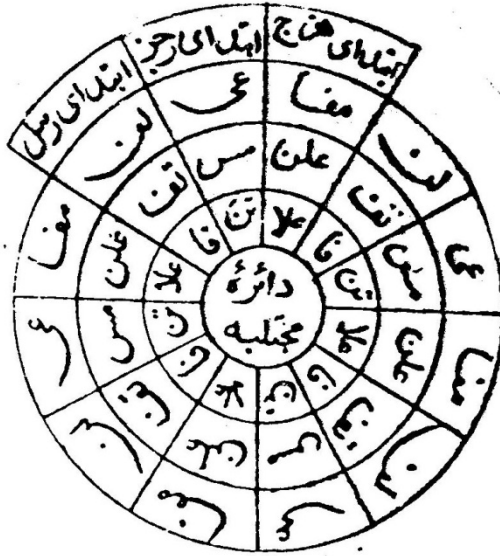 ابتدای هزج
ابتدای رجز
ابتدای رمل
مفا عی لن مفا عی لن مفا عی لن مفا عی لن
علن مس تف علن مس تف علن مس تف علن مس تف
علا تن فا علا تن فا علا تن فا علا تن فا
دائرهٔ
مجتلبه